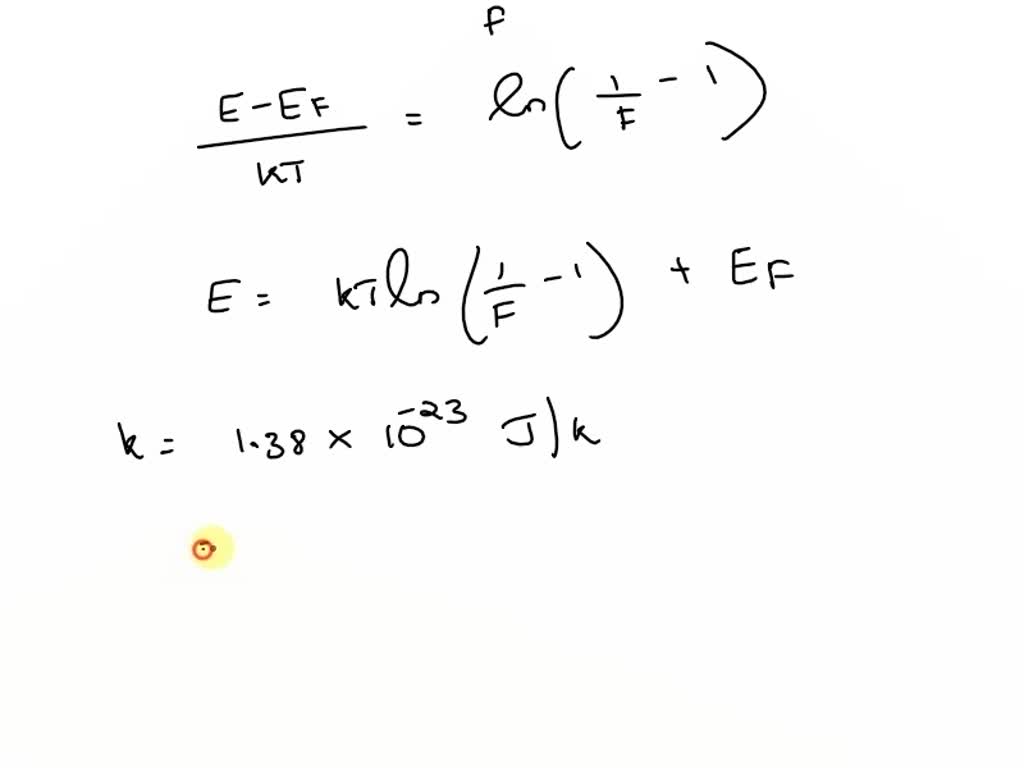 F
E-EF/KT = ln(1/F - 1)
E = KT ln(1/F - 1) + EF
k = 1.38 × 10^-23 J/k